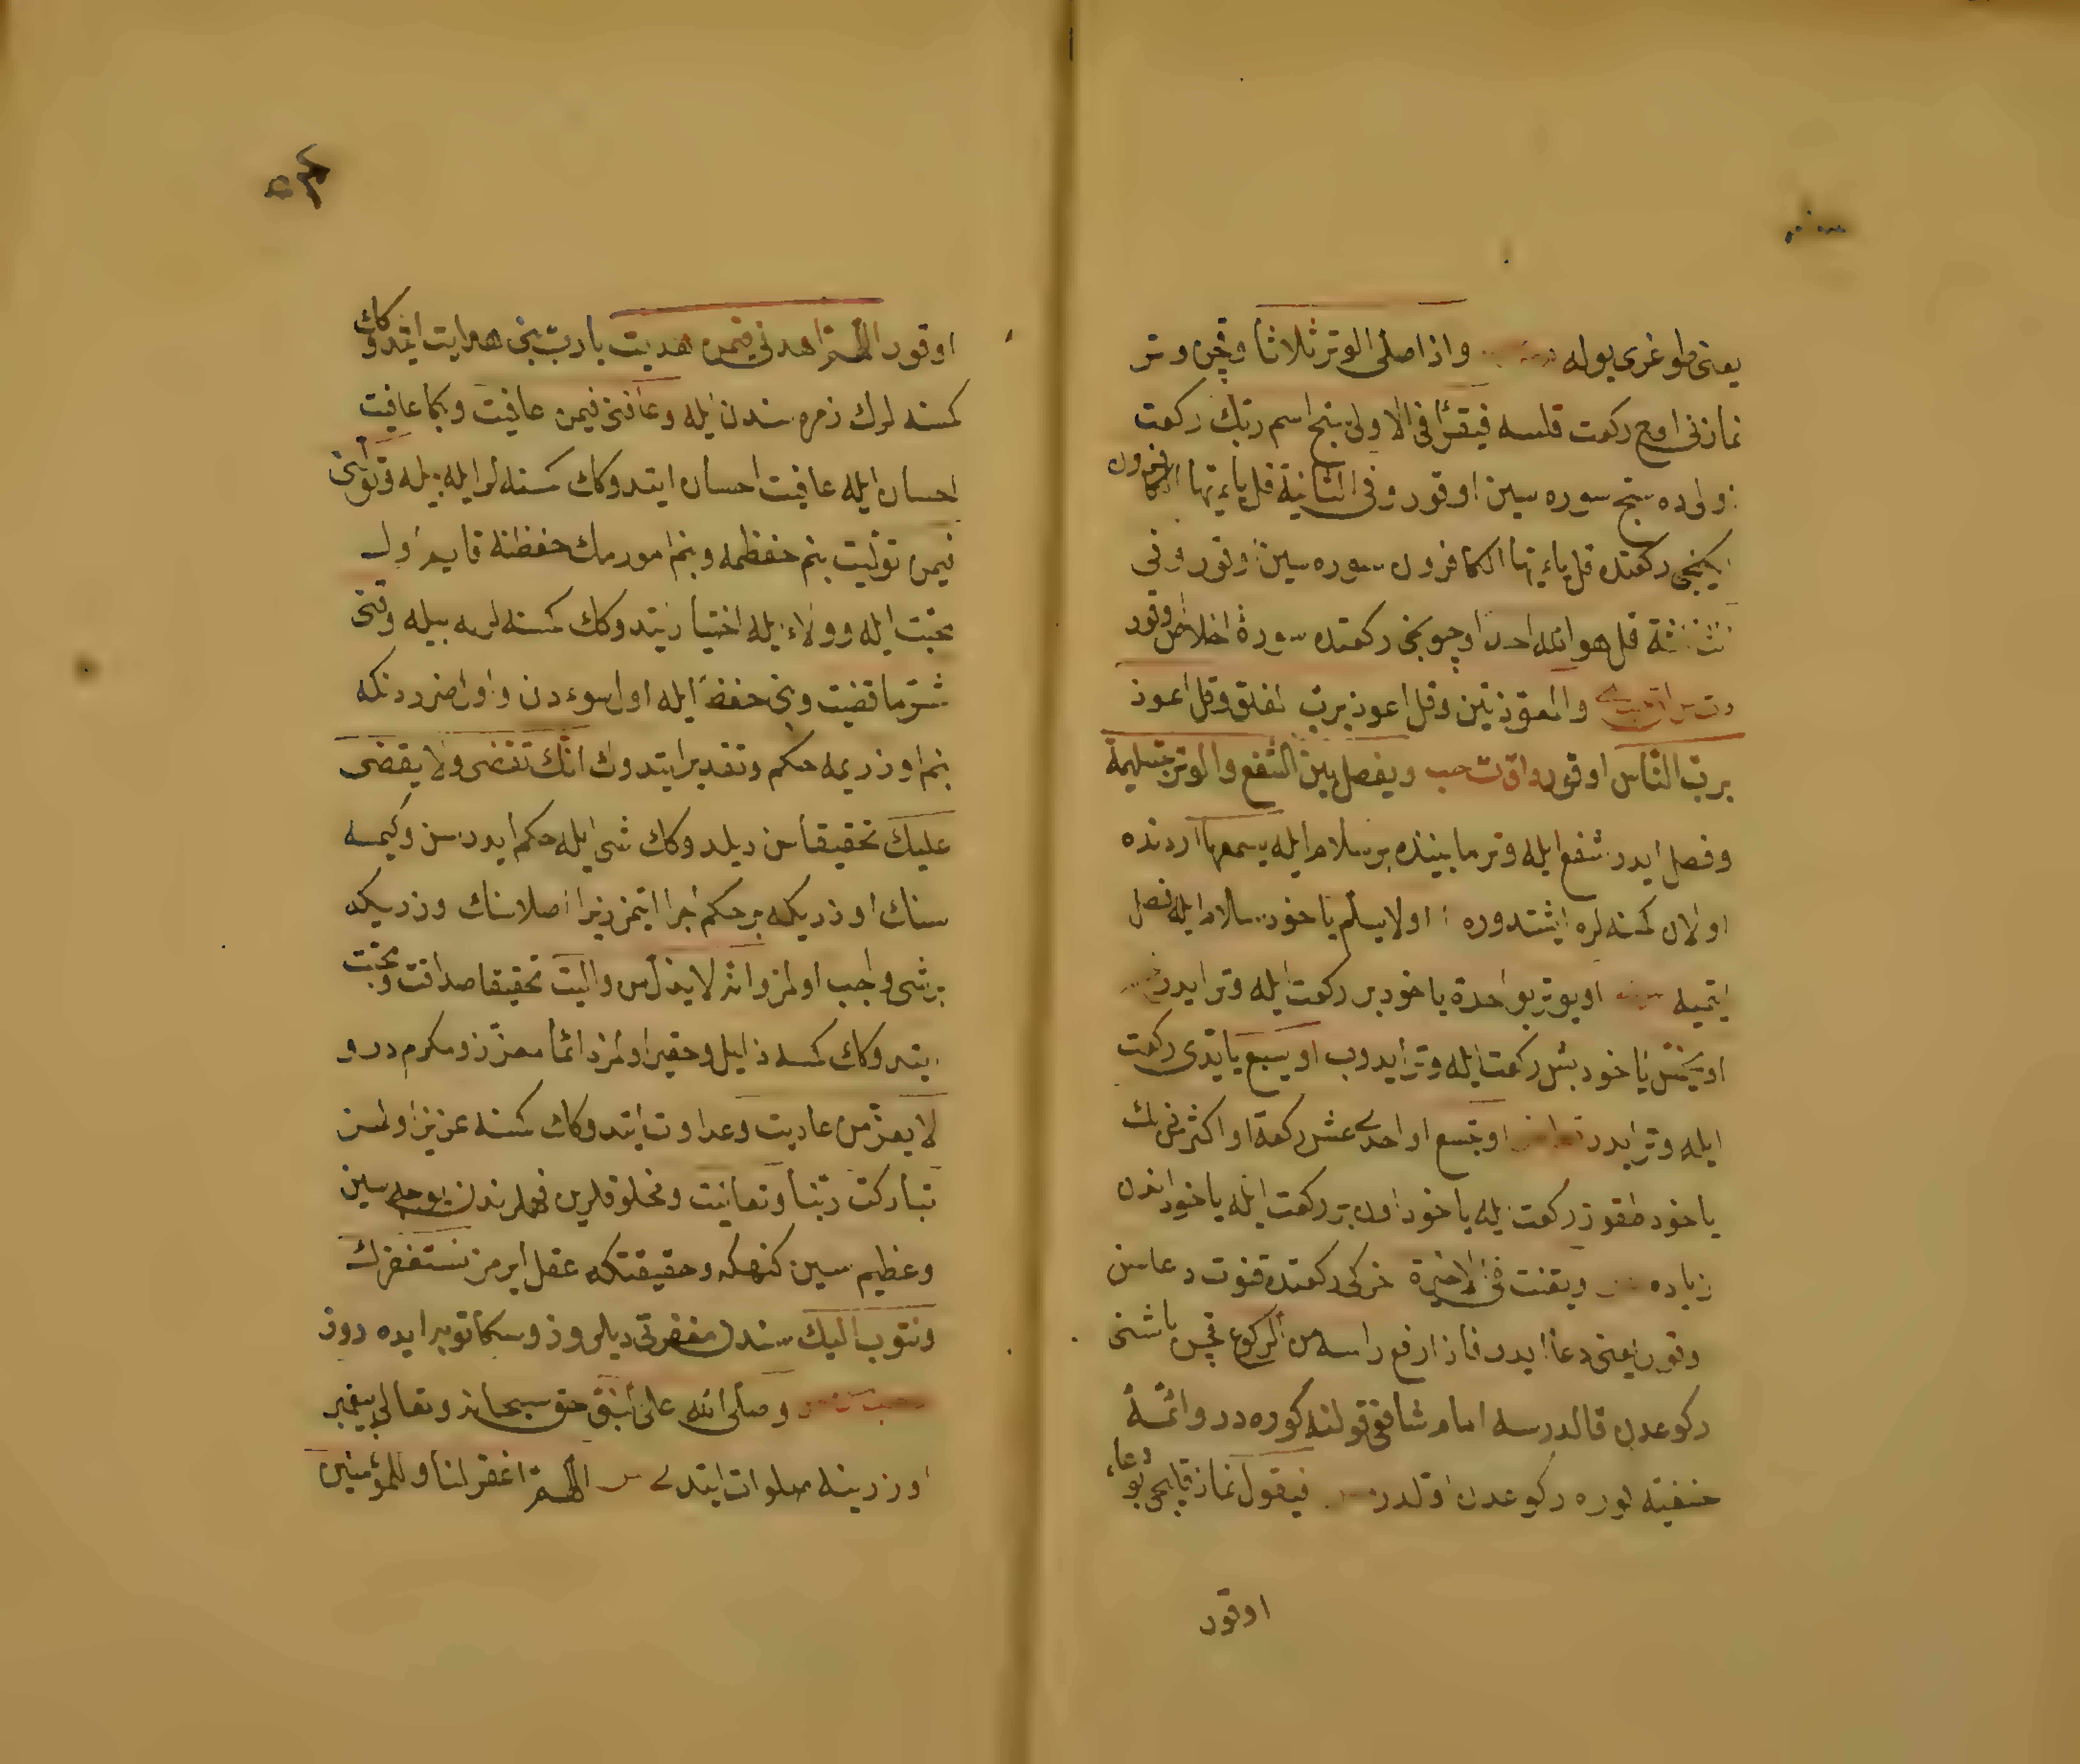 يعنى طوغرى يوله واذا صلى الوتر ثلاثا وقچن وتر
نمازنى اوچ ركعت قلسه فيقرأ فى الاولى سبح اسم ربك ركعت
اولاده سبح سوره سين اوقور وفى الثانية قل ياءيها الكافرون
ايكنجى ركعتده قل ياءيها الكافرون سوره سين اوقور وفى
الثالثة قل هو الله احد اوچونجى ركعتده سورۀ اخلاص اوقور
والمعوذتين وقل اعوذ برب الفلق وقل اعوذ
برب الناس اوقور ويفصل بين الشفع والوتر بتسليمة
وفصل ايدر شفع ايله وتر مابيننده بر سلام ايله يسمعها اردنده
اولان كمسنه لره ايشتدوره اولا يسلم ياخود سلام ايله فصل
ايتميه اويوتر بواحدة ياخود بر ركعت ايله وتر ايدر
اوبخمس ياخود بش ركعت ايله وتر ايدوب او بسبع يا يدى ركعت
ايله وتر ايدر اوبتسع او احدى عشر ركعة او اكثر من ذلك
ياخود طقوز ركعت ايله ياخود اون بر ركعت ايله ياخود اندن
زياده ويقنت فى الاخيرة اخركى ركعتده قنوت دعاسن
اوقور يعنى دعا ايدر فاذا رفع راسه من الركوع قچن باشنى
ركوعدن قالدرسه امام شافعى قولنه كوره در وائمۀ
حنفيه كوره ركوعدن اولدر فيقول نماز قليجى بو دعاء
اوقور
اوقور اللهم اهدنى فيمن هديت يارب بنى هدايت ايتدوكك
كمسنه لرك زمره سندن ايله وعافنى فيمن عافيت وبكا عافيت
احسان ايله عافيت احسان ايتدوكك كمسنه لر ايله بيله وتولنى
فيمن توليت بنم حفظمه وبنم امورمك حفظنه قايم اول
محبت ايله وولاء ايله اختيار ايتدوكك كمسنه لرله بيله وقنى
شر ما قضيت وبنى حفظ ايله اول سوءدن واول ضرردنكه
بنم اوزريمه حكم وتقدير ايتدوك انك تقضى ولا يقضى
عليك تحقيقا سن ديلدوكك شى ايله حكم ايدرسن وكيمسه
سنك اوزريكه بر حكم اجرا ايتمز زيرا اصلا سنك اوزريكه
بر شى واجب اولمز وانه لا يذل من واليت تحقيقا صداقت ومحبت
ايتدوكك كمسه ذليل وحقير اولمز دائما معزز ومكرم در و
لا يعز من عاديت وعداوت ايتدوكك كمسنه عزيز اولمز
تباركت ربنا وتعاليت ومخلوقلرين فهملرندن يوجه سين
وعظيم سين كنهكه وحقيقتكه عقل ايرمز نستغفرك
ونتوب اليك سندن مغفرتى ديلروز وسكا توبه ايده روز
وصلى الله على النبى حق سبحانه وتعالى پيغمبر
اوزرينه صلوات ايتدى اللهم اغفر لنا وللمؤمنين